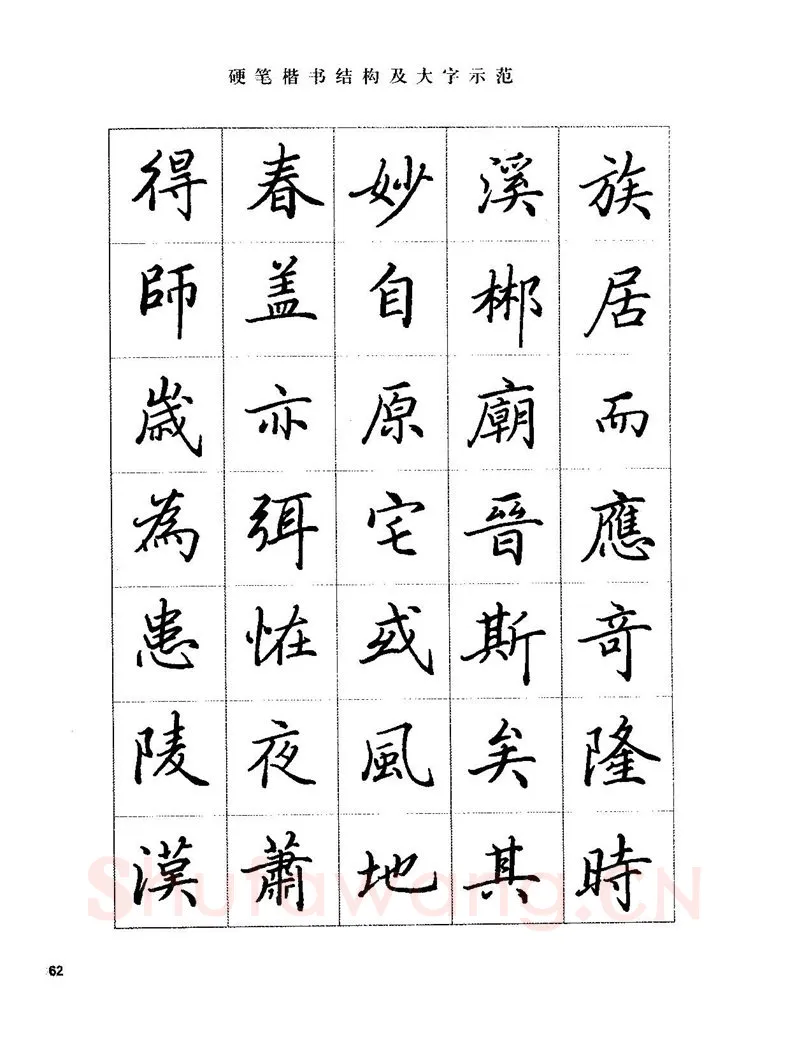 硬笔楷书结构及大字示范
族居而應竒隆時
溪郴廟晉斯矣其
妙自原宅或風地
春盖亦弭恠夜蕭
得師嵗為患陵漢
62
Shufawang.CN